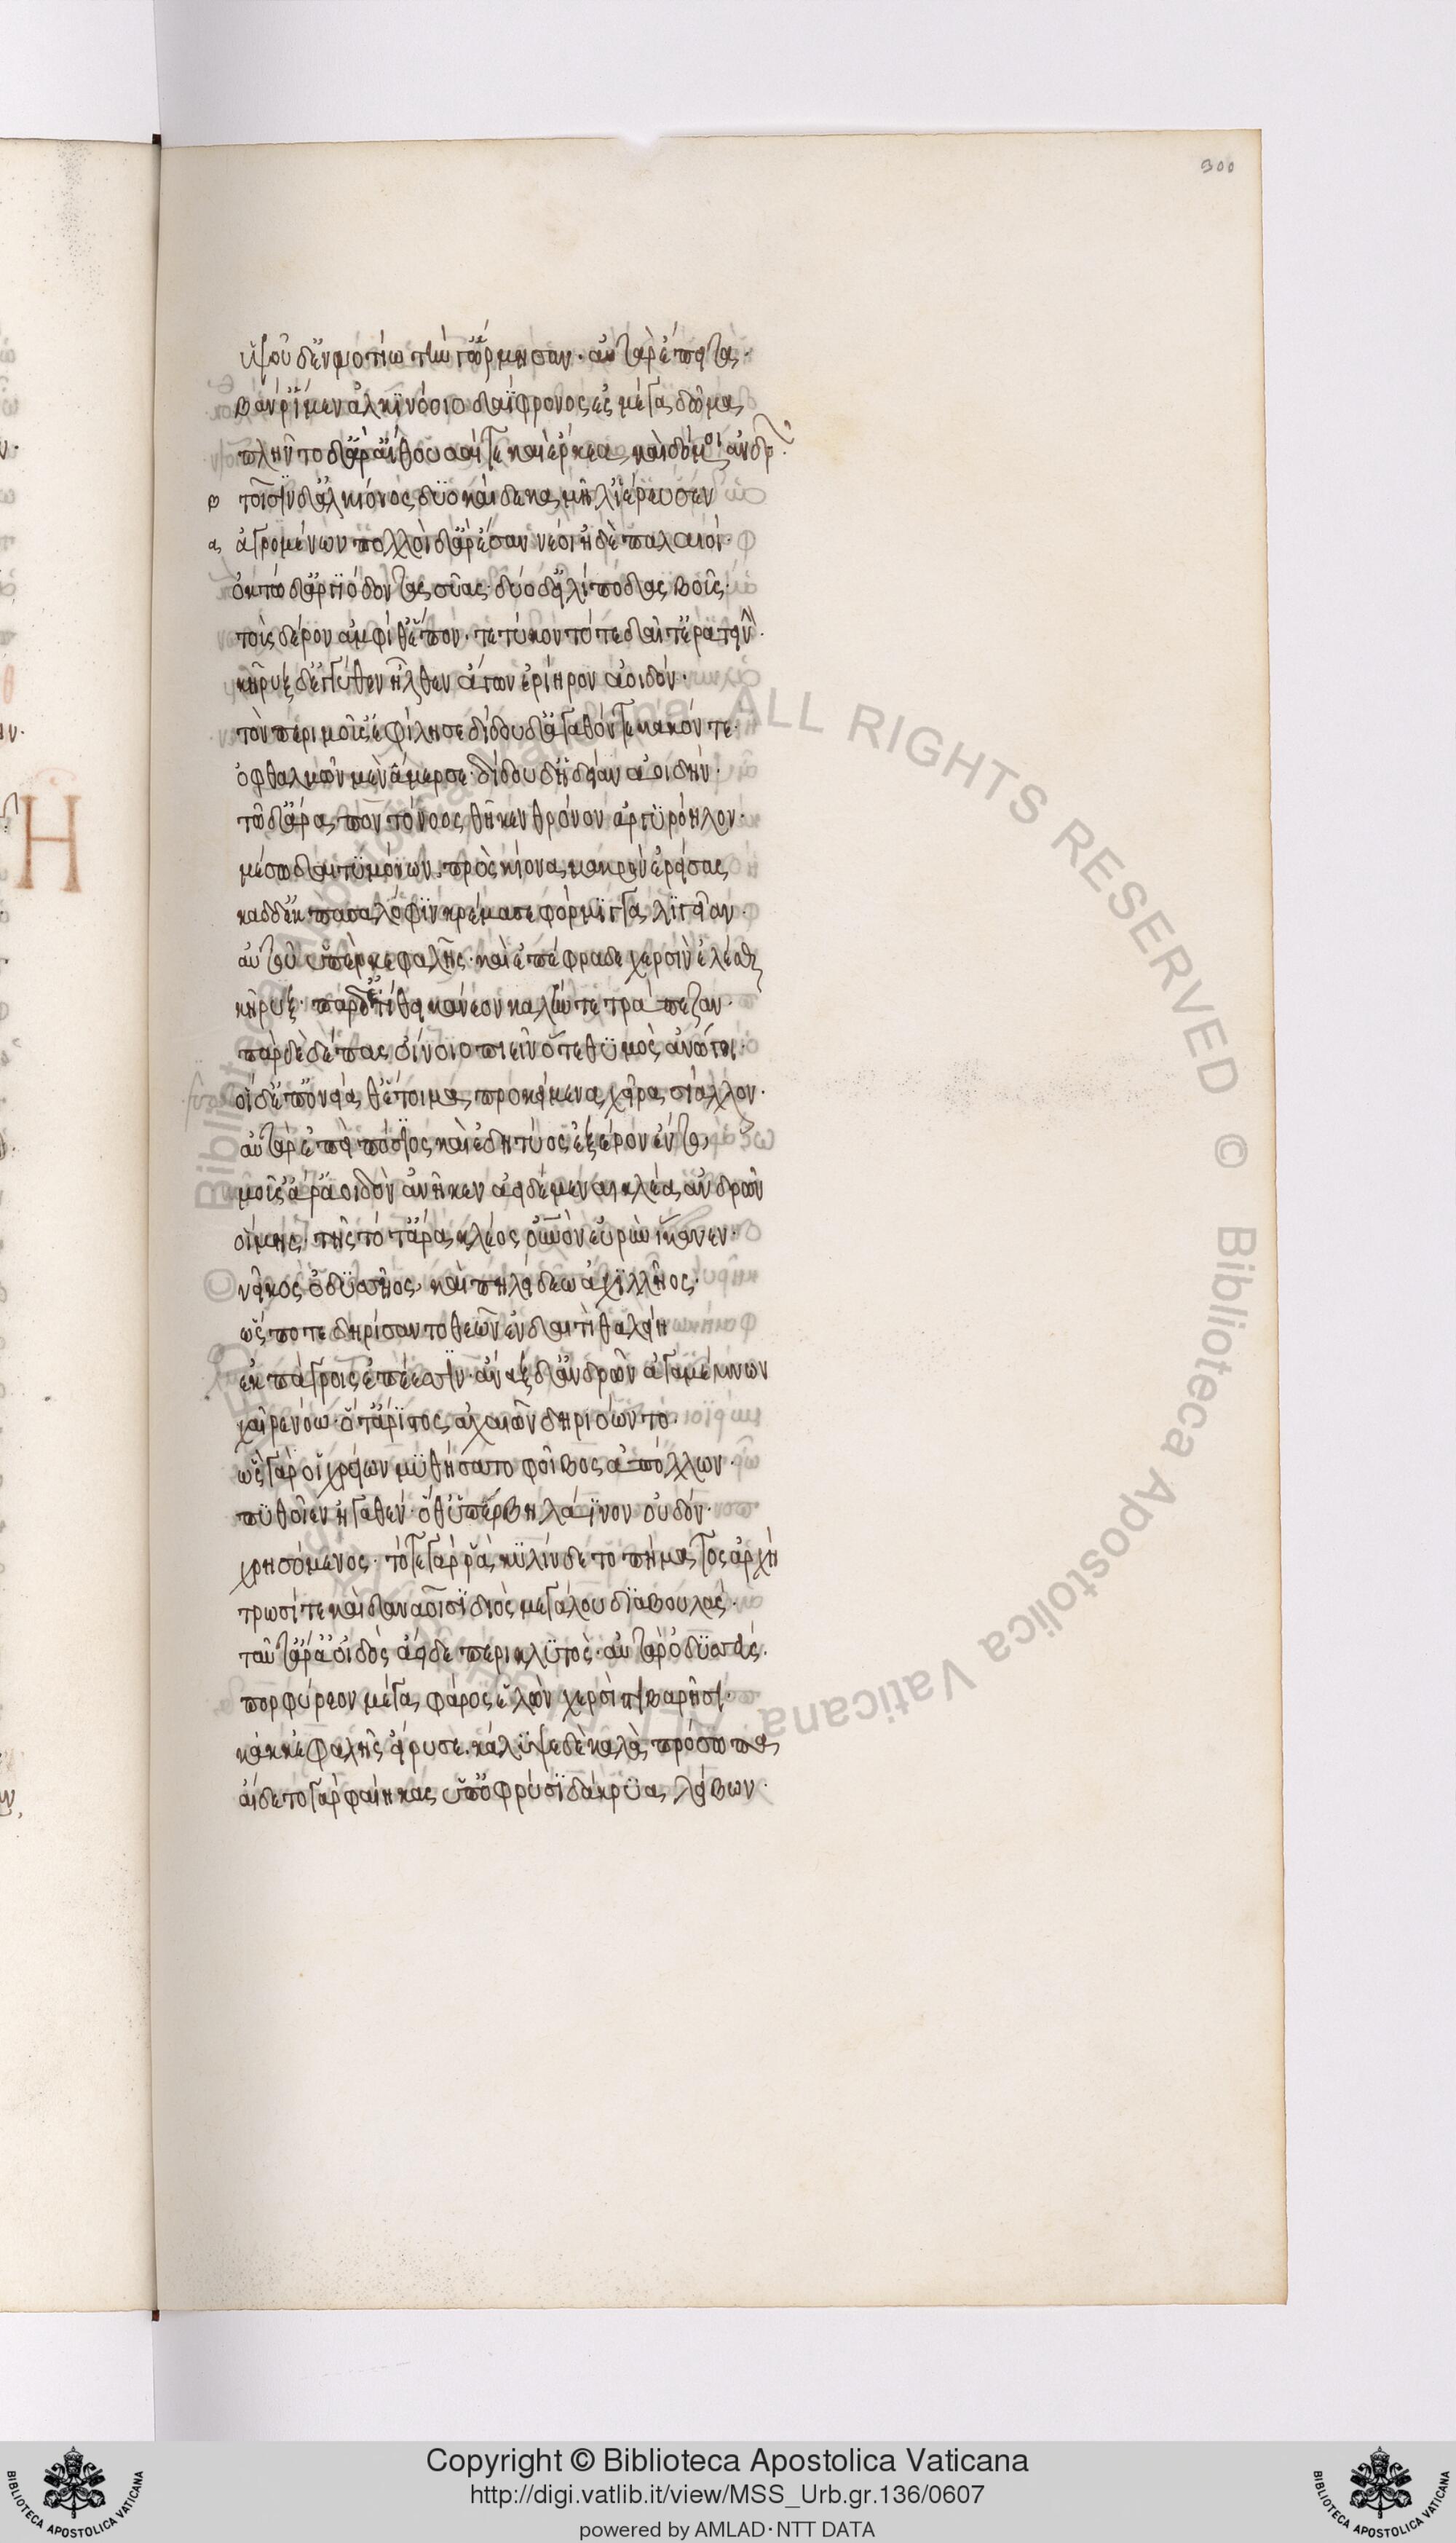 300
ὑψοῦ δ' ἐν νοτίω τήν γ' ὥρμησαν· αὐτὰρ ἔπειτα
βάν ῥ' ἴμεν ἀλκινόοιο δαΐφρονος ἐς μέγα δῶμα
πλῆντο δ' ἄρ' αἴθουσαί τε καὶ ἕρκεα καὶ δόμοι ἀνδρ
β τοῖσιν δ' ἀλκίνοος δυοκαίδεκα μῆλ' ἱέρευσεν
α ἀγρομένων πολλοὶ δ' ἄρ' ἔσαν νέοι ἠδὲ παλαιοί·
ὀκτὼ δ' ἀργιόδοντας σύας· δύο δ' εἰλίποδας βοῦς·
τοὺς δέρον ἀμφί θ' ἕπον· τετύκοντό τε δαῖτ' ἐρατεινήν·
κῆρυξ δ' ἐγγύθεν ἦλθεν ἄγων ἐρίηρον ἀοιδόν·
τὸν πέρι μοῦσ' ἐφίλησε δίδου δ' ἀγαθόν τε κακόν τε·
ὀφθαλμῶν μὲν ἄμερσε· δίδου δ' ἡδεῖαν ἀοιδήν·
τῶ δ' ἄρα ποντόνοος θῆκεν θρόνον ἀργυρόηλον·
μέσω δαιτυμόνων· πρὸς κίονα μακρὸν ἐρείσας
καδδ' ἐκ πασαλόφιν κρέμασε φόρμιγγα λίγειαν·
αὐτοῦ ὑπὲρ κεφαλῆς· καὶ ἐπέφραδε χερσὶν ἑλέσθαι
κῆρυξ· παρ δ' ἐτίθει κάνεον καλήν τε τράπεζαν·
πὰρ δὲ δέπας οἴνοιο πιεῖν ὅτε θυμὸς ἀνώγοι·
οἱ δ' ἐπ' ὀνείαθ' ἑτοῖμα προκείμενα χεῖρας ἴαλλον·
αὐτὰρ ἐπεὶ πόσιος καὶ ἐδητύος ἐξ ἔρον ἕντο
μοῦσ' ἄρ' ἀοιδὸν ἀνῆκεν ἀειδέμεναι κλέα ἀνδρῶν
οἴμης· τῆς τότ' ἄρα κλέος οὐρανὸν εὐρὺν ἵκανεν·
νεῖκος ὀδυσῆος καὶ πηλείδεω ἀχιλλῆος·
ὥς ποτε δηρίσαντο θεῶν ἐν δαιτὶ θαλείη
ἐκπάγλοις ἐπέεσσιν· ἄναξ δ' ἀνδρῶν ἀγαμέμνων
χαῖρε νόω· ὅτ' ἄριστος ἀχαιῶν δηριόωντο·
ὣς γάρ οἱ χρείων μυθήσατο φοῖβος ἀπόλλων·
πυθοῖ ἐν ἠγαθέη· ὅθ' ὑπέρβη λάϊνον οὐδόν·
χρησόμενος· τότε γάρ ῥα κυλίνδετο πήματος ἀρχὴ
τρωσί τε καὶ δαναοῖσι διὸς μεγάλου διὰ βουλάς·
ταῦτ' ἄρ' ἀοιδὸς ἄειδε περικλυτός· αὐτὰρ ὀδυσσεύς·
πορφύρεον μέγα φάρος ἑλὼν χερσὶ στιβαρῆσι·
κὰκ κεφαλῆς εἴρυσε· κάλυψε δὲ καλὰ πρόσωπα
αἴδετο γὰρ φαίηκας ὑπ' ὀφρύσι δάκρυα λείβων·
Copyright © Biblioteca Apostolica Vaticana
http://digi.vatlib.it/view/MSS_Urb.gr.136/0607
powered by AMLAD·NTT DATA